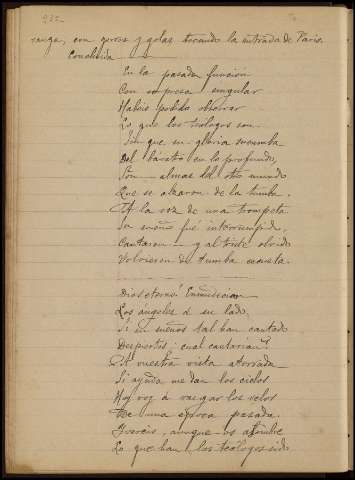 232
rangs, con gorros y golas tocando la entrada de Paris.
Concluida
En la pasada función
Con sorpresa singular
Habeis podido observar
Lo que los teólogos son.
Sin que su gloria sucumba
Del báratro en lo profundo,
Son almas del otro mundo
Que se alzaron de la tumba.
A la voz de una trompeta
Su sueño fué interrumpido,
Cantaron y al triste olvido
Volvieron de tumba escueta.
Dios eterno! Enmudecian
Los ángeles a su lado,
Si en sueños tal han cantado
Despertos ¡cual cantarian!
A vuestra vista aterrada
Si ayuda me dan los cielos
Hoy voy á rasgar los velos
De una época pasada.
Vereis, aunque os asombre
Lo que han los teólogos sido